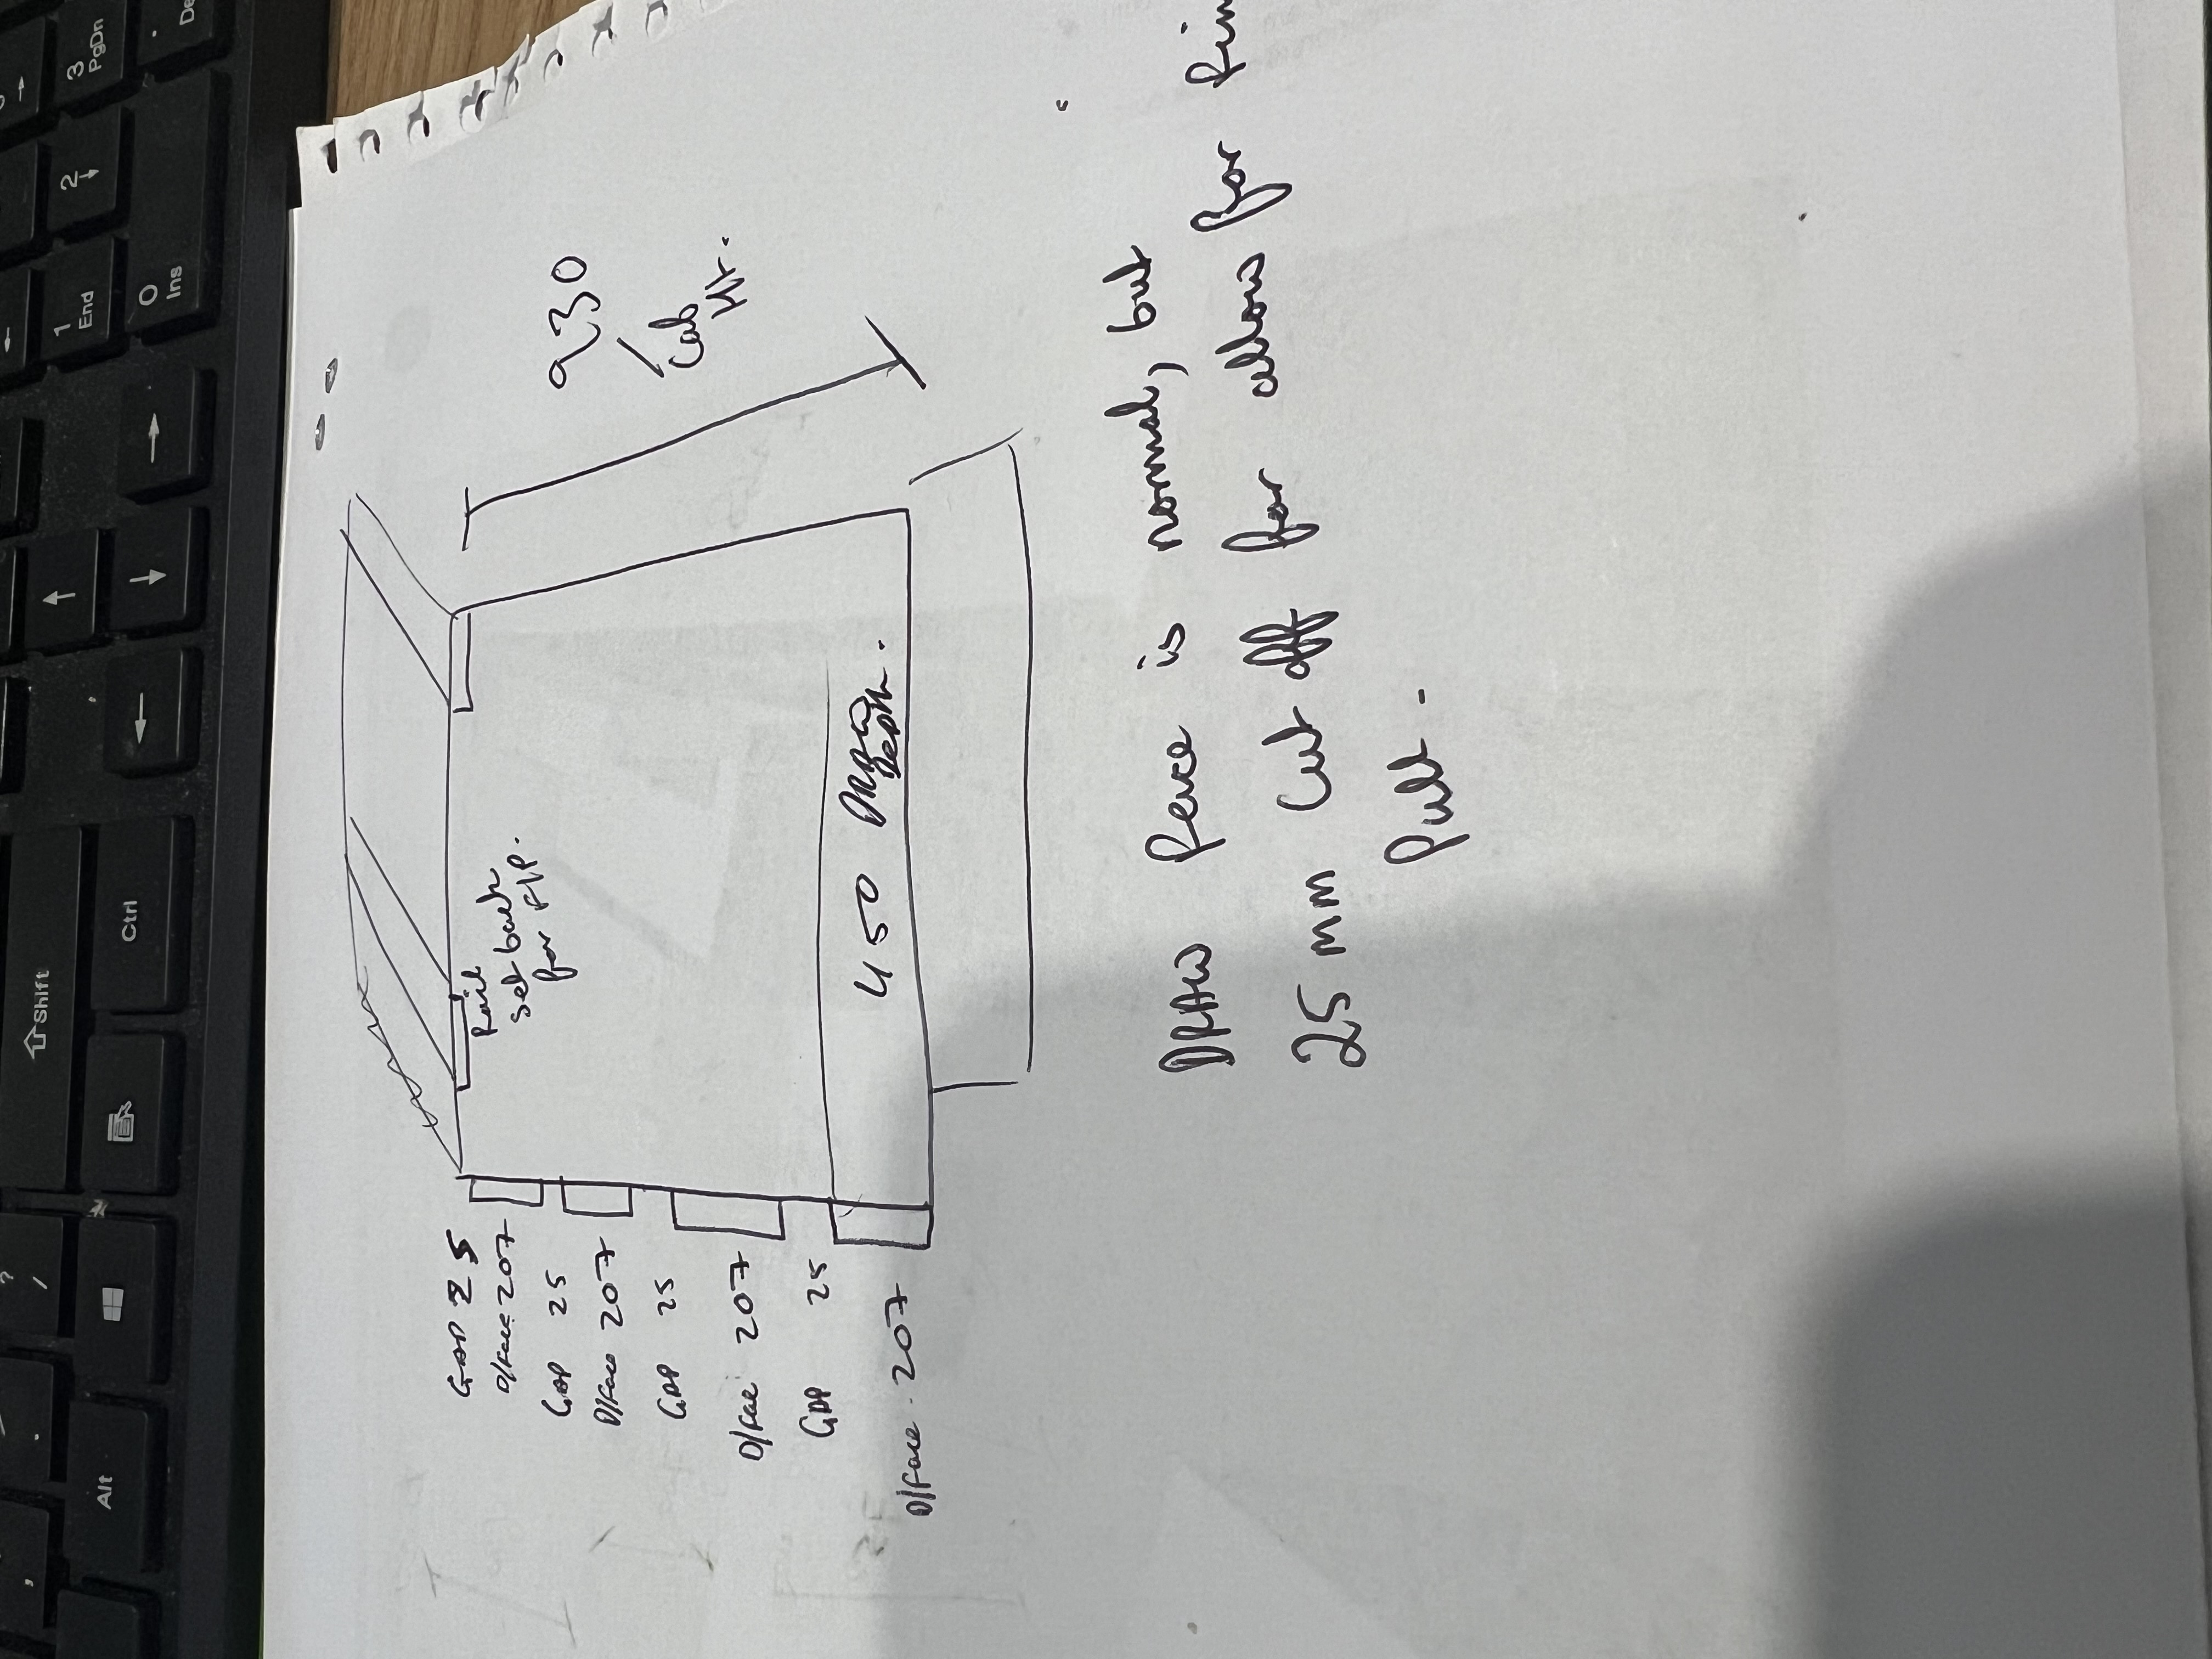 930
Cab
Ht.
Rail
set back
for F/P.
GAP 25
D/face 207
GAP 25
D/face 207
GAP 25
D/face 207
GAP 25
D/face - 207
450 DRAW
Depth.
DRAW face is normal, but
25 mm Cut off for allows for fin
Pull.
3
PgDn
2
1
End
0
Ins
Shift
Ctrl
Alt
?
/
.
,
De